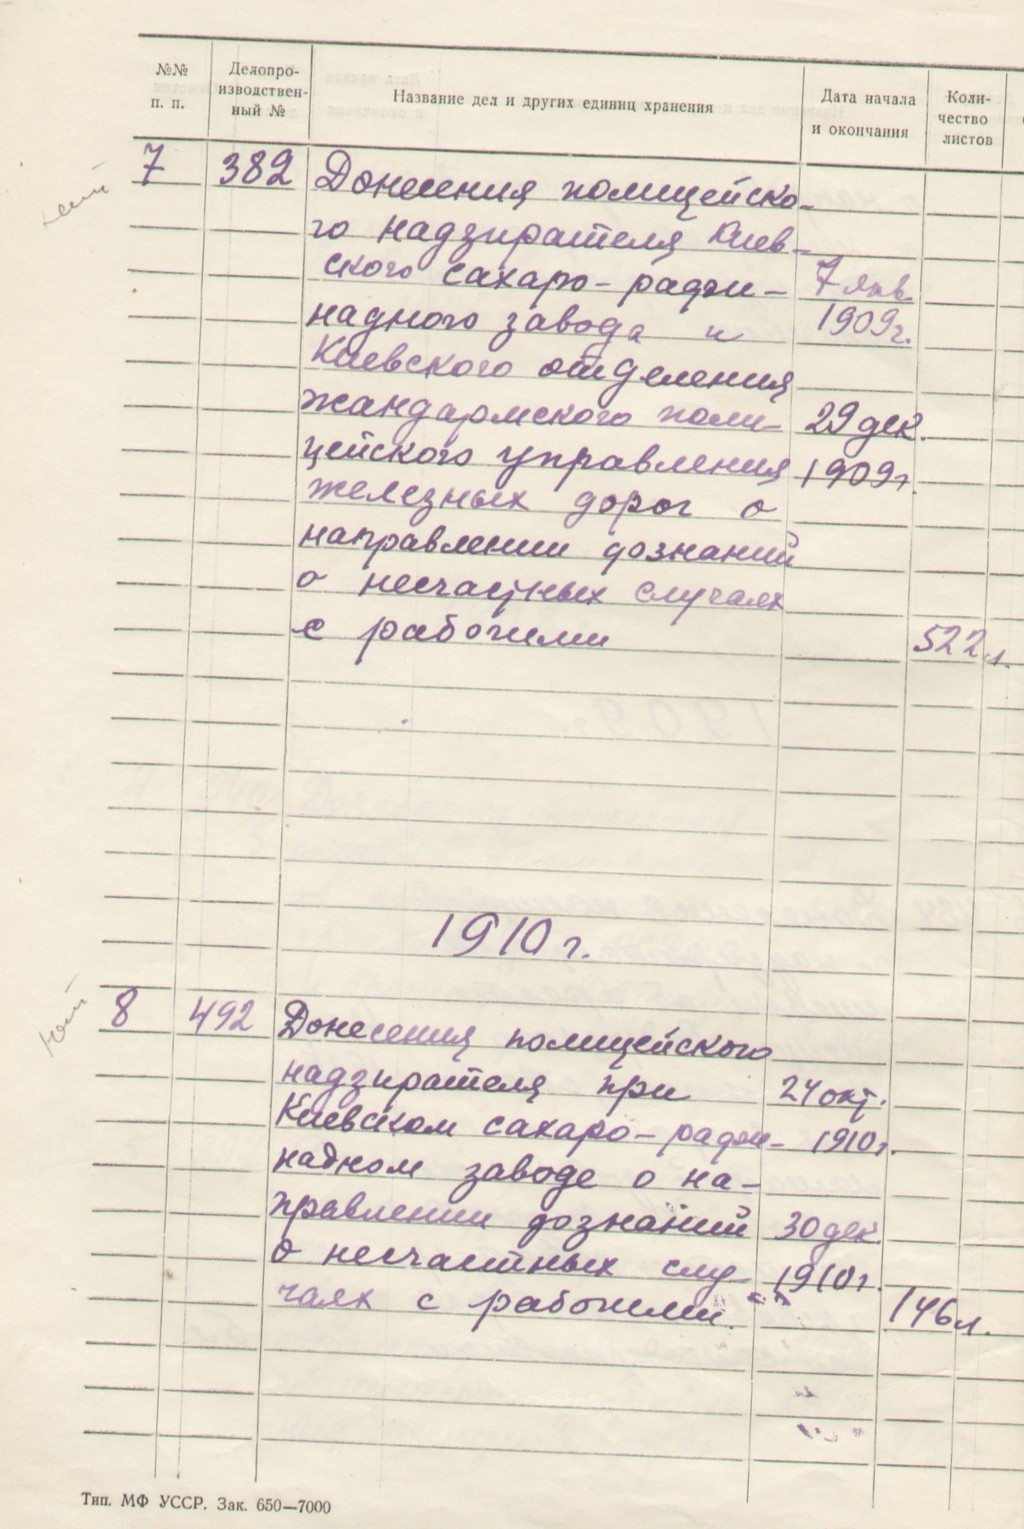 №№ п. п.
Делопро-
изводствен-
ный №
Название дел и других единиц хранения
Дата начала
и окончания
Коли-
чество
листов
7 382 Донесения полицейско-
го надзирателя Киев-
ского сахаро-рафи- 7 янв.
надного завода и 1909г.
Киевского отделения
жандармского поли- 29 дек.
цейского управления 1909г.
железных дорог о
направлении дознаний
о несчастных случаях
с рабочими 522 л.
1910 г.
8 492 Донесения полицейского
надзирателя при 24 окт.
Киевском сахаро-рафи- 1910г.
надном заводе о на-
правлении дознаний 30 дек.
о несчастных слу- 1910г.
чаях с рабочими. 146 л.
Тип. МФ УССР. Зак. 650—7000